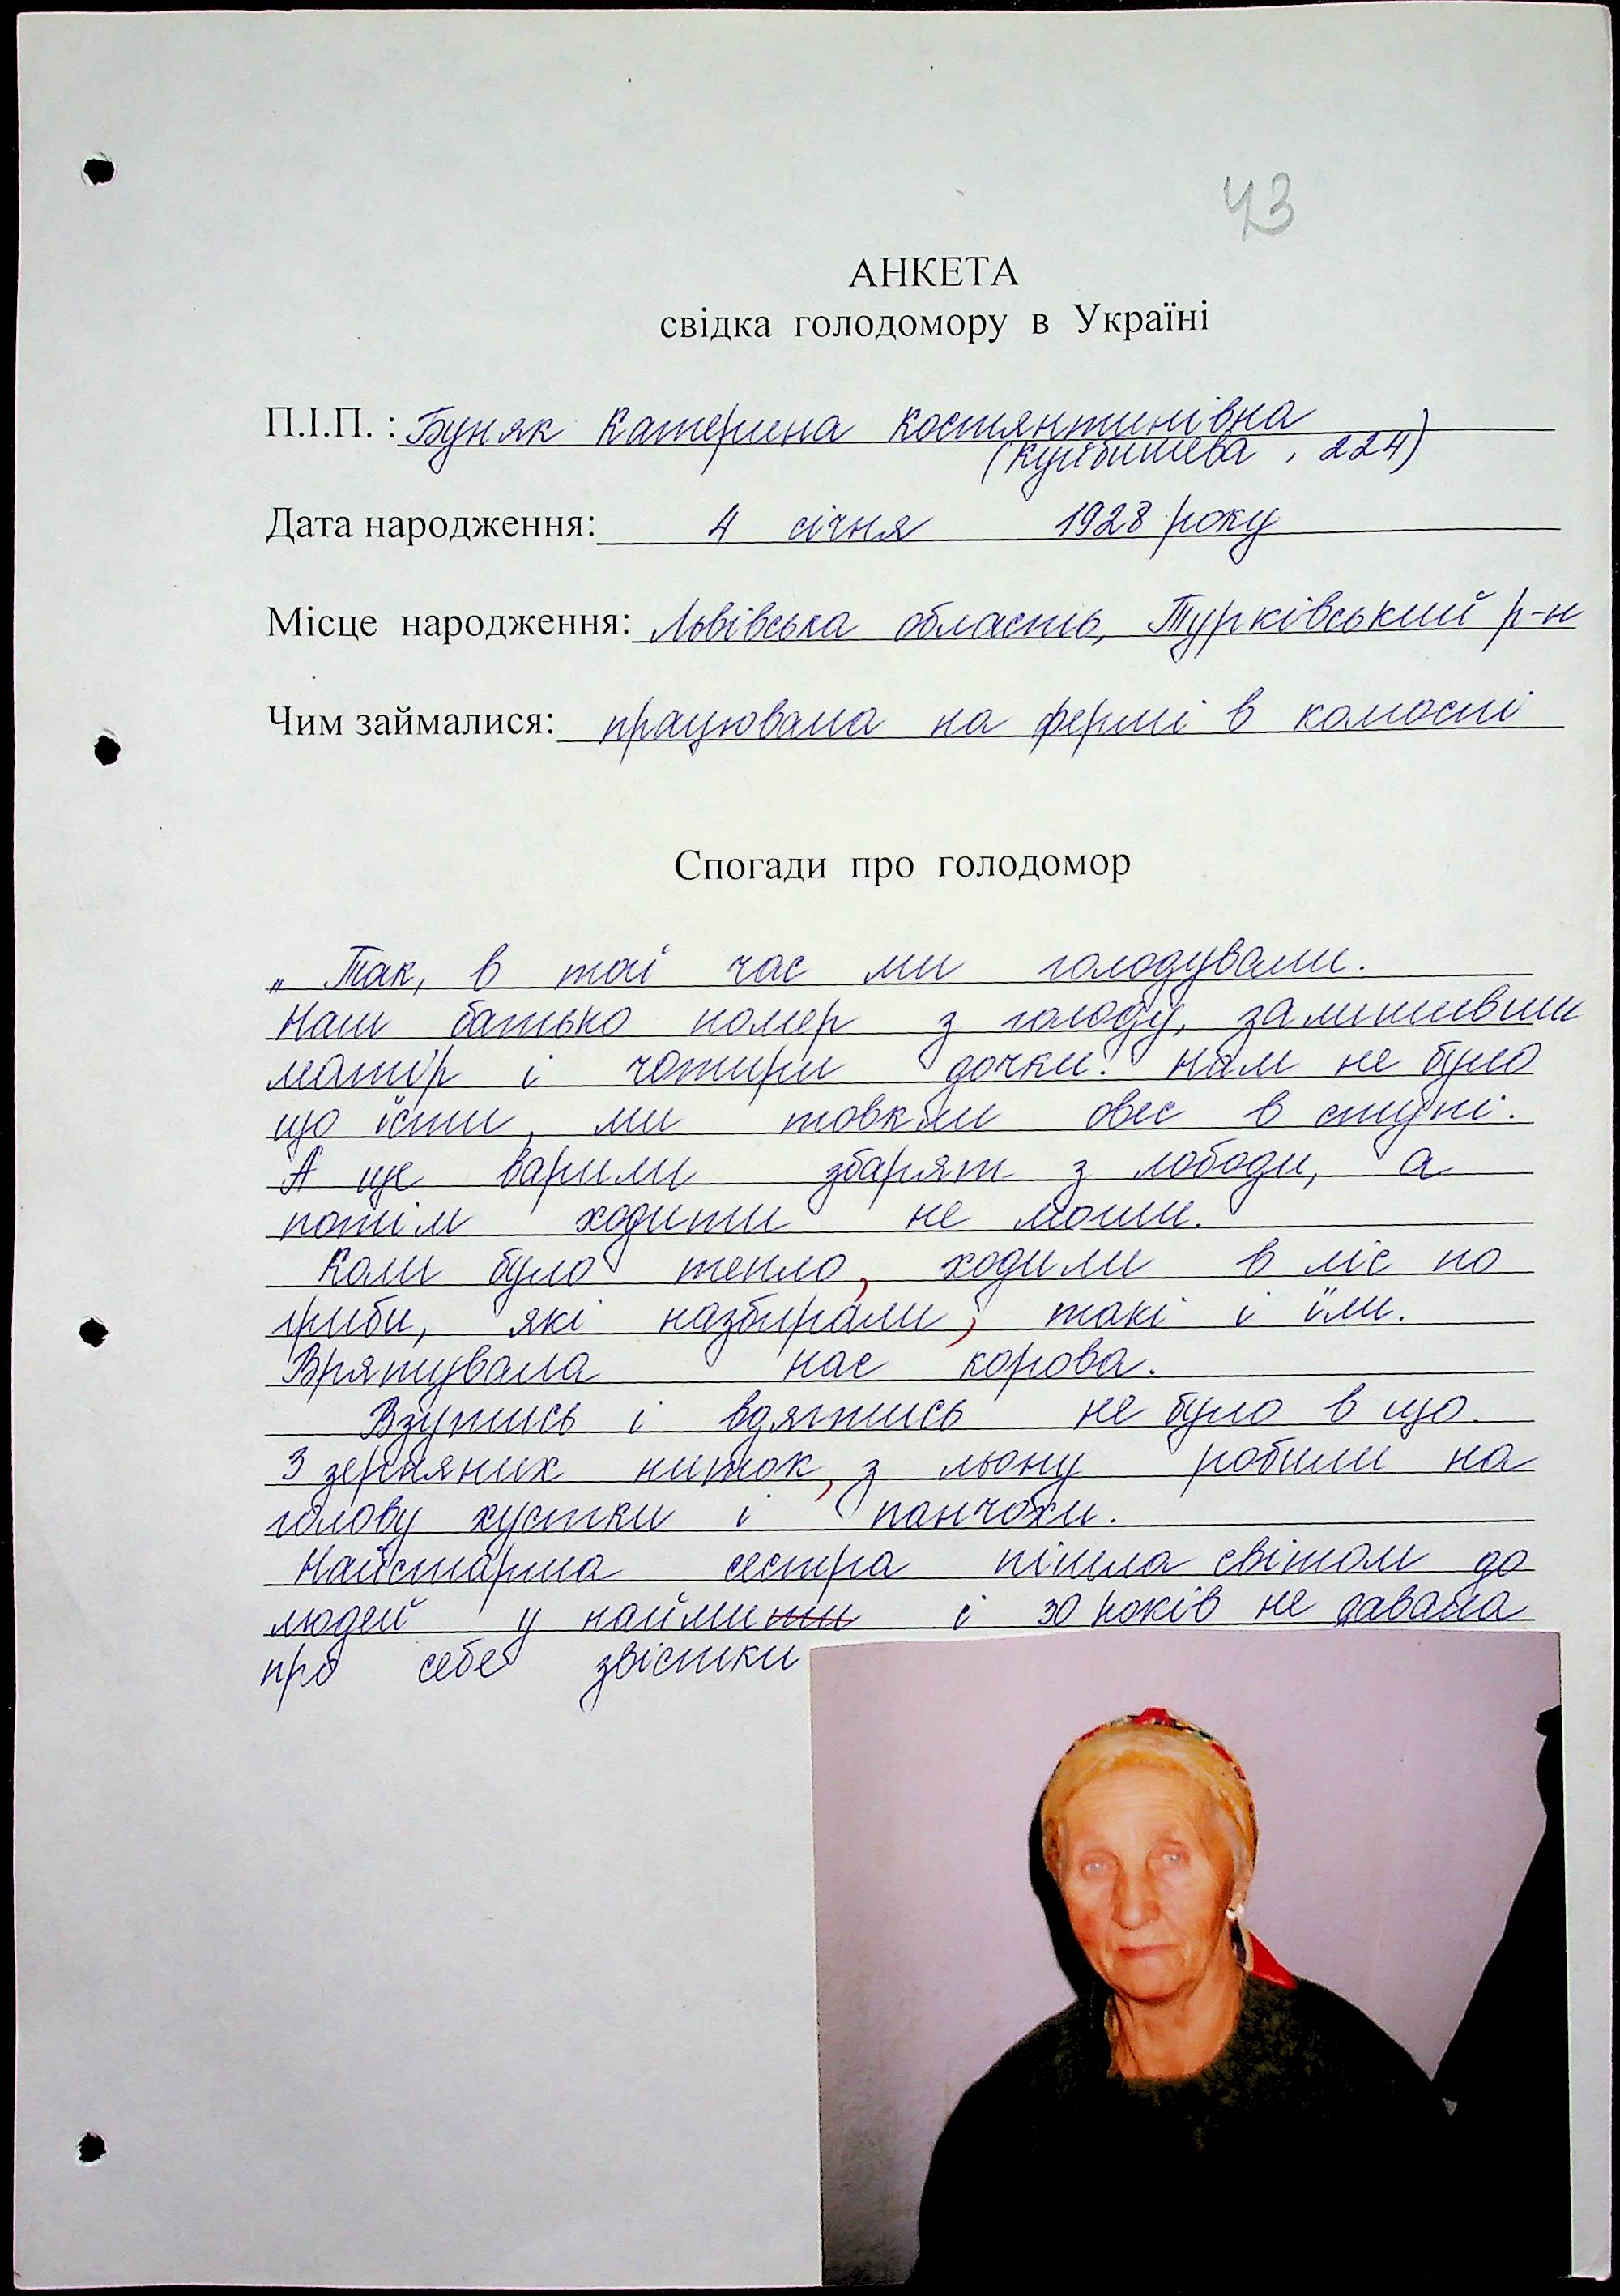 43
АНКЕТА
свідка голодомору в Україні
П.І.П. : Буняк Катерина Костянтинівна
(Куйбишева, 224)
Дата народження: 4 січня 1928 року
Місце народження: Львівська область, Турківський р-н
Чим займалися: працювала на фермі в колгоспі
Спогади про голодомор
„ Так, в той час ми голодували.
Наш батько помер з голоду, залишивши
матір і чотири дочки. Нам не було
що їсти, ми товкли овес в ступі.
А ще варили з лободи, а
потім ходити не могли.
Коли було тепло, ходили в ліс по
гриби, які назбирали, такі і їли.
Врятувала нас корова.
Взутись і вдягтись не було в що.
З ниток, з льону робили на
голову хустки і панчохи.
Найстарша сестра пішла світом до
людей у найми і 30 років не давала
про себе звістки